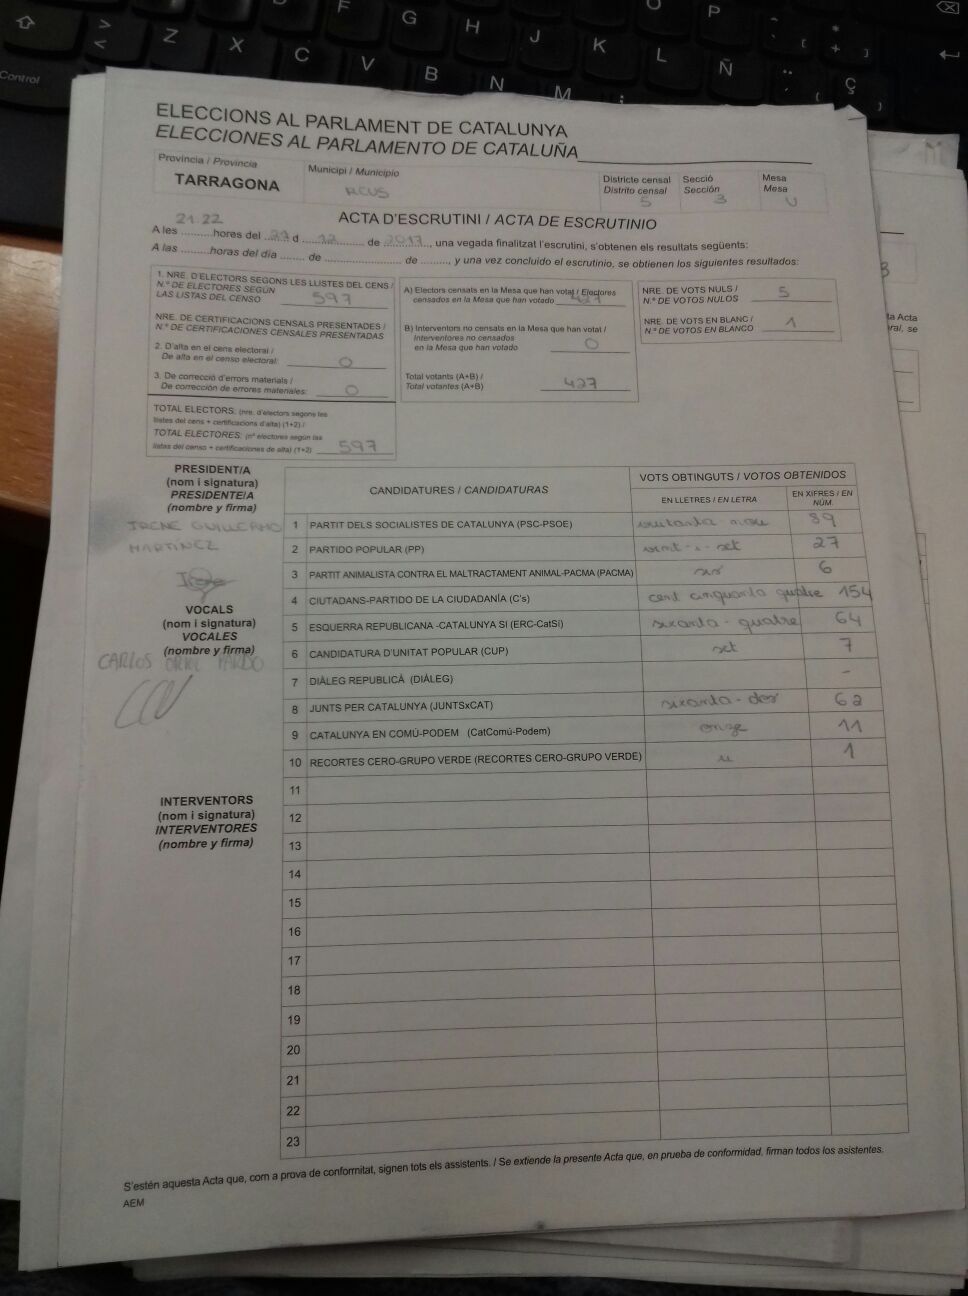 Control
Z
X
C
V
B
N
M
F
G
H
J
K
L
Ñ
O
P
Ç
ELECCIONS AL PARLAMENT DE CATALUNYA
ELECCIONES AL PARLAMENTO DE CATALUÑA
Província / Provincia
TARRAGONA
Municipi / Municipio
REUS
Districte censal
Distrito censal
5
Secció
Sección
3
Mesa
Mesa
U
ACTA D'ESCRUTINI / ACTA DE ESCRUTINIO
A les 21:22 hores del 21 d 12 de 2017, una vegada finalitzat l'escrutini, s'obtenen els resultats següents:
A las ........horas del día ....... de ...................... de ........, y una vez concluido el escrutinio, se obtienen los siguientes resultados:
1. NRE. D'ELECTORS SEGONS LES LLISTES DEL CENS /
N.º DE ELECTORES SEGÚN
LAS LISTAS DEL CENSO 597
NRE. DE CERTIFICACIONS CENSALS PRESENTADES /
N.º DE CERTIFICACIONES CENSALES PRESENTADAS
2. D'alta en el cens electoral /
De alta en el censo electoral: 0
3. De correcció d'errors materials /
De corrección de errores materiales: 0
TOTAL ELECTORS: (nre. d'electors segons les
llistes del cens + certificacions d'alta) (1+2) /
TOTAL ELECTORES: (nº electores según las
listas del censo + certificaciones de alta) (1+2) 597
A) Electors censats en la Mesa que han votat / Electores
censados en la Mesa que han votado 427
B) Interventors no censats en la Mesa que han votat /
Interventores no censados
en la Mesa que han votado 0
Total votants (A+B) /
Total votantes (A+B) 427
NRE. DE VOTS NULS /
N.º DE VOTOS NULOS 5
NRE. DE VOTS EN BLANC /
N.º DE VOTOS EN BLANCO 1
PRESIDENT/A
(nom i signatura)
PRESIDENTE/A
(nombre y firma)
IRENE GUILLERMO
MARTÍNEZ
Irene
VOCALS
(nom i signatura)
VOCALES
(nombre y firma)
CARLOS PARDO
INTERVENTORS
(nom i signatura)
INTERVENTORES
(nombre y firma)
CANDIDATURES / CANDIDATURAS
VOTS OBTINGUTS / VOTOS OBTENIDOS
EN LLETRES / EN LETRA
EN XIFRES / EN NÚM.
1 PARTIT DELS SOCIALISTES DE CATALUNYA (PSC-PSOE) vuitanta nou 89
2 PARTIDO POPULAR (PP) vint-i-set 27
3 PARTIT ANIMALISTA CONTRA EL MALTRACTAMENT ANIMAL-PACMA (PACMA) sis 6
4 CIUTADANS-PARTIDO DE LA CIUDADANÍA (C's) cent cinquanta quatre 154
5 ESQUERRA REPUBLICANA -CATALUNYA SI (ERC-CatSí) sixanta-quatre 64
6 CANDIDATURA D'UNITAT POPULAR (CUP) set 7
7 DIÀLEG REPUBLICÀ (DIÀLEG) -
8 JUNTS PER CATALUNYA (JUNTSxCAT) sixanta-dos 62
9 CATALUNYA EN COMÚ-PODEM (CatComú-Podem) onze 11
10 RECORTES CERO-GRUPO VERDE (RECORTES CERO-GRUPO VERDE) u 1
11
12
13
14
15
16
17
18
19
20
21
22
23
S'estén aquesta Acta que, com a prova de conformitat, signen tots els assistents. / Se extiende la presente Acta que, en prueba de conformidad, firman todos los asistentes.
AEM